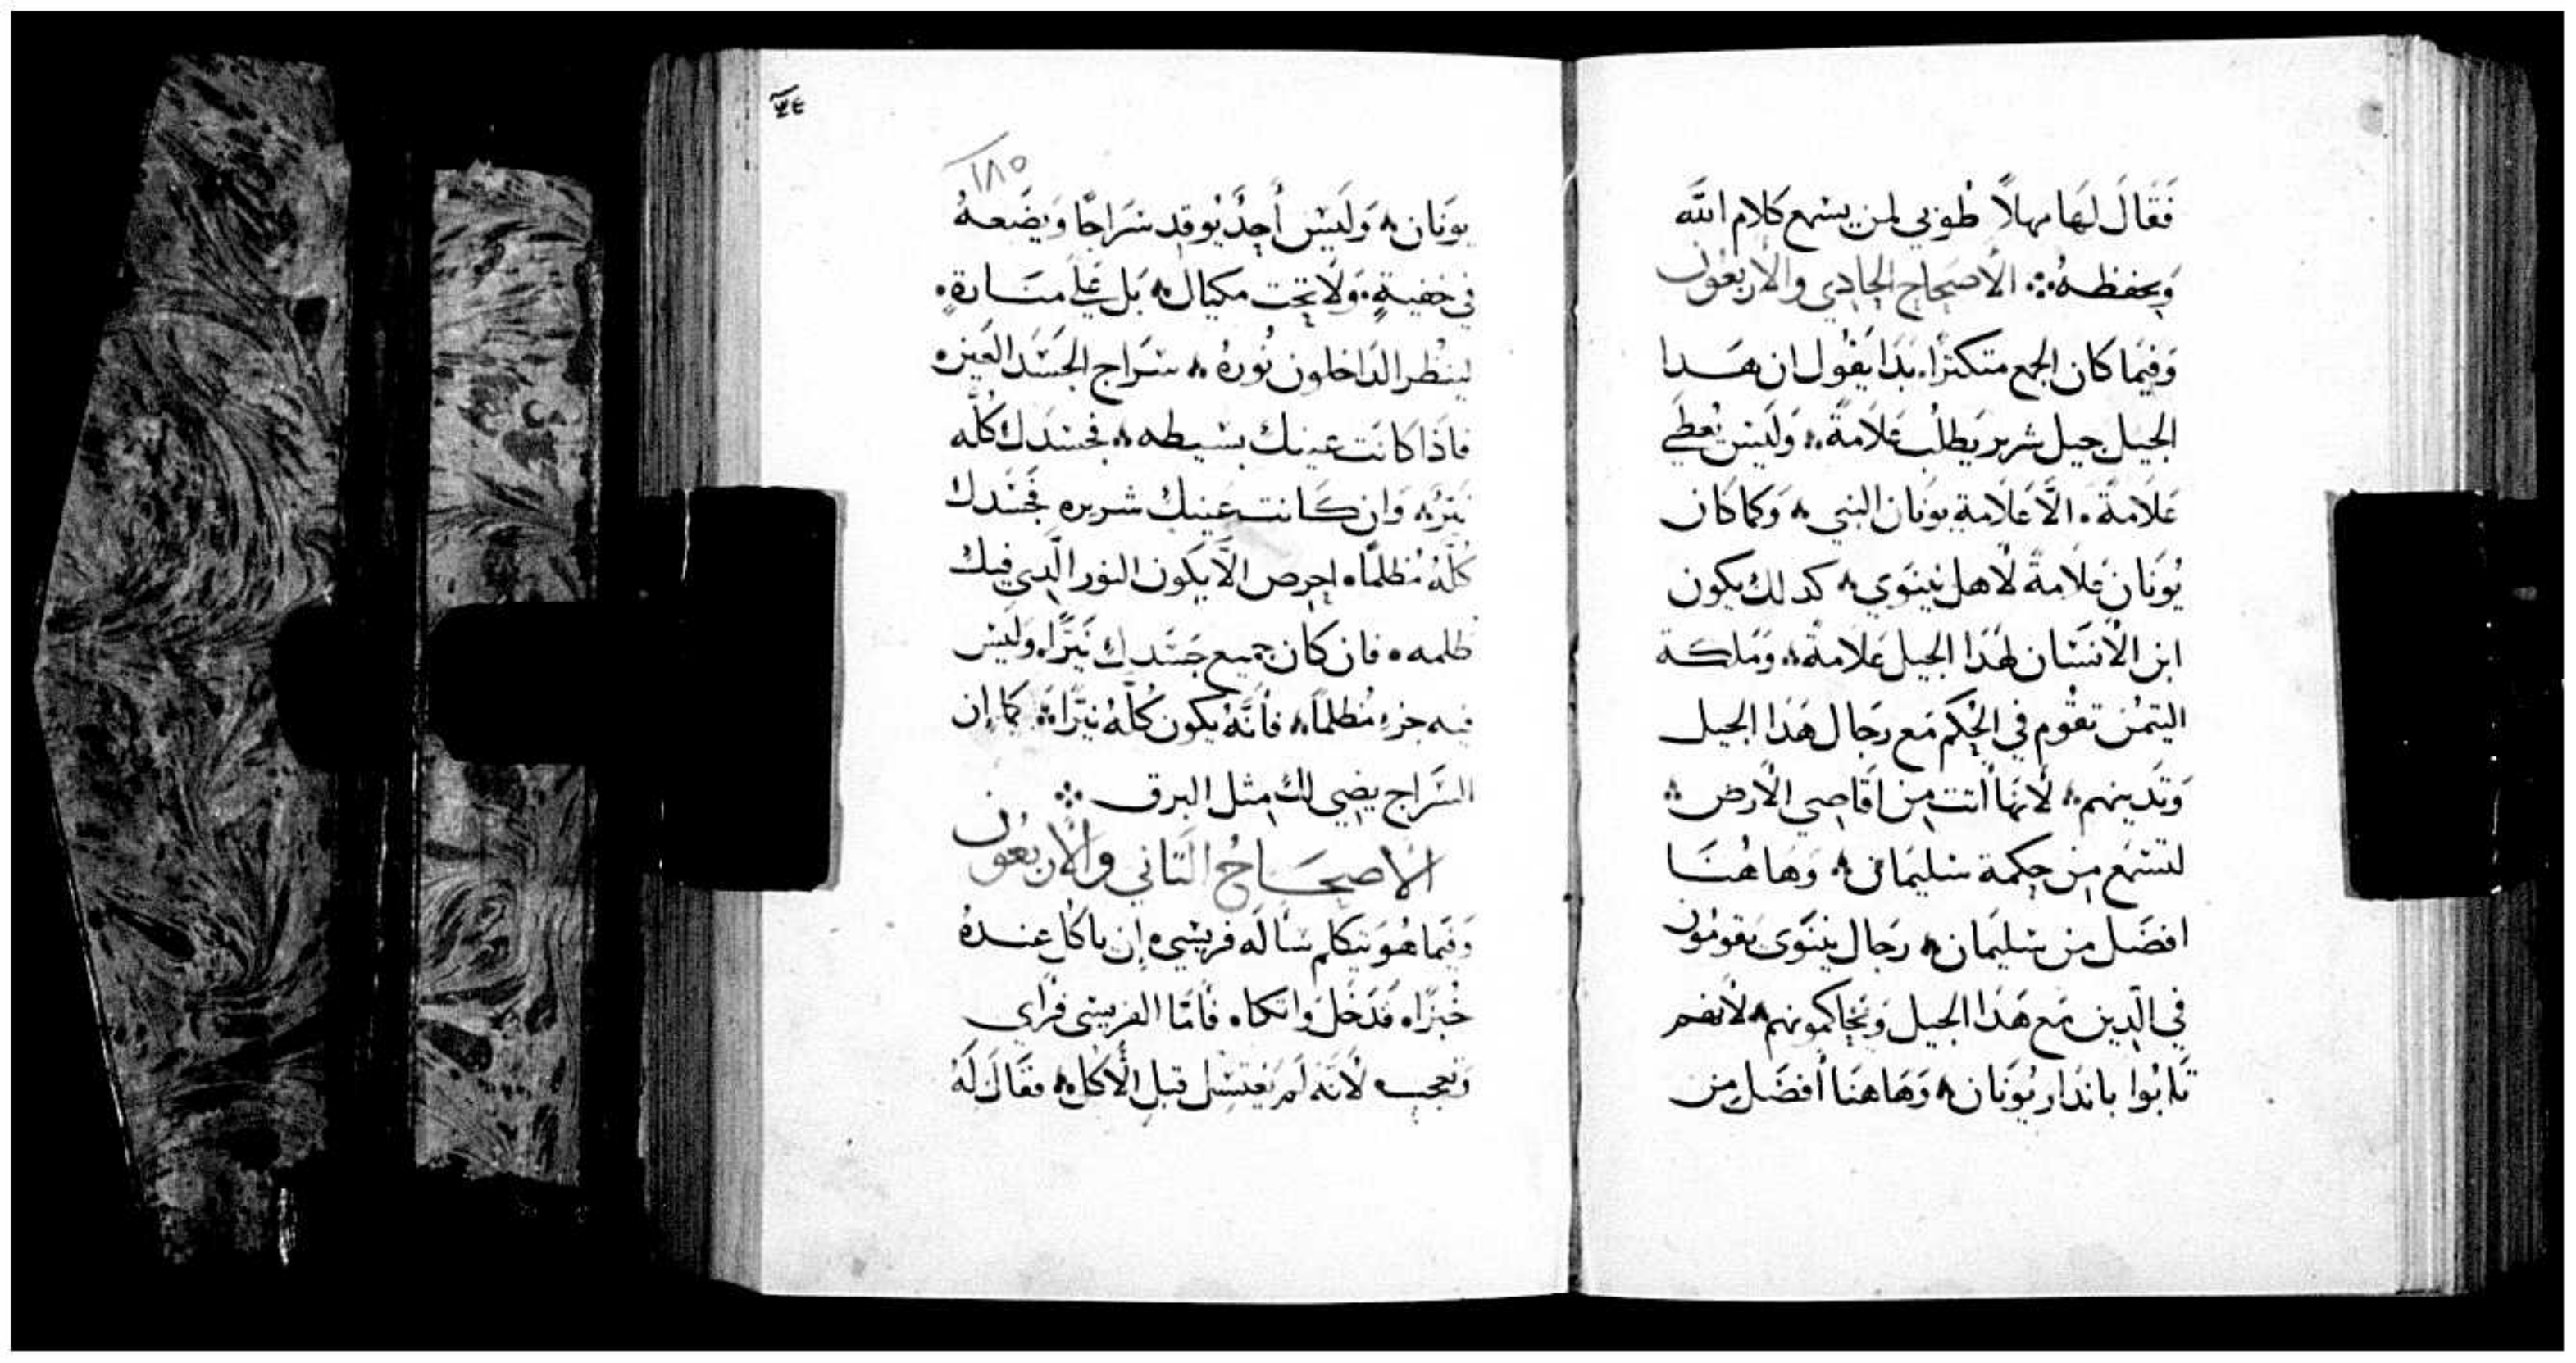 فَقَالَ لَهَا مهلاً طُوبي لمن يسمع كلام الله
وَيحفظهُ ܀ الأصحاح الحادي والأربعون
وَفيمَا كان الجمع متكثرًا. بَدَا يَقُول ان هَدا
الجيل جيل شرير يَطلُب عَلاَمَةً. وَليسَ يُعطَي
عَلاَمَةً. الَّا عَلاَمة يونَان النبي ܀ وَكمَا كَان
يُونَان عَلاَمةً لأهل نينَوي ܀ كدلك يكون
ابن الأنسَان لهَدَا الجيل عَلاَمةً ܀ وَمَلكة
التيمُن تقُوم في الحُكم مَع رجَال هَدَا الجيل
وَتَدينهم ܀ لأنهَا أتت مِن اقَاصِي الأرض ܀
لتسمَع مِن حِكمة سُليمَان ܀ وَهَا هُنَا
افضَل من سُليمَان ܀ رجَال نينَوَى يَقومُون
في الدِين مَع هَدَا الجيل وَيُحَاكمونهم ܀ لأنهم
تَابُوا باندَار يُونَان ܀ وَهَاهنَا أفضَل مِن
٣٤
١٨٥
يونَان ܀ وَلَيسَ أحِدٌ يُوقد سَرَاجًا وَيضَعهُ
في خفيةٍ. وَلَا تحت مكيال ܀ بَل عَلَي منَارةٍ.
لينظر الدَاخلون نُورهُ ܀ سَرَاج الجسَد العَين ه
فاذَا كانَت عينك بسيطه ܀ فجسَدك كُلَّه
نيّرٌ ܀ وَان كَانت عَينك شريره فجَسَدك
كُلَّهُ مُظلمًا ه احرص الَّا يكون النور الَّدِي فيك
ظلمه ه فان كان جميع جَسَدك نَيّرًا. وَليسَ
فيه جزء مُظلمًا ܀ فأنَّهُ يكون كُلَّهُ نيّرًا ܀ كمَا إن
السّرَاج يضِي لك مِثل البرق ܀
الأصحَاحُ التَاني والأربعُون
وَفيمَا هُوَ يتكلم سَألَه فريسي ه إن ياكُل عندهُ
خُبزًا ه فَدَخَل وَاتكا ه فأمَّا الفريسي فرَأي
وَتعجب لأنَّه لَم يَغتسِل قبل الأكل ܀ فقَالَ لَهُ